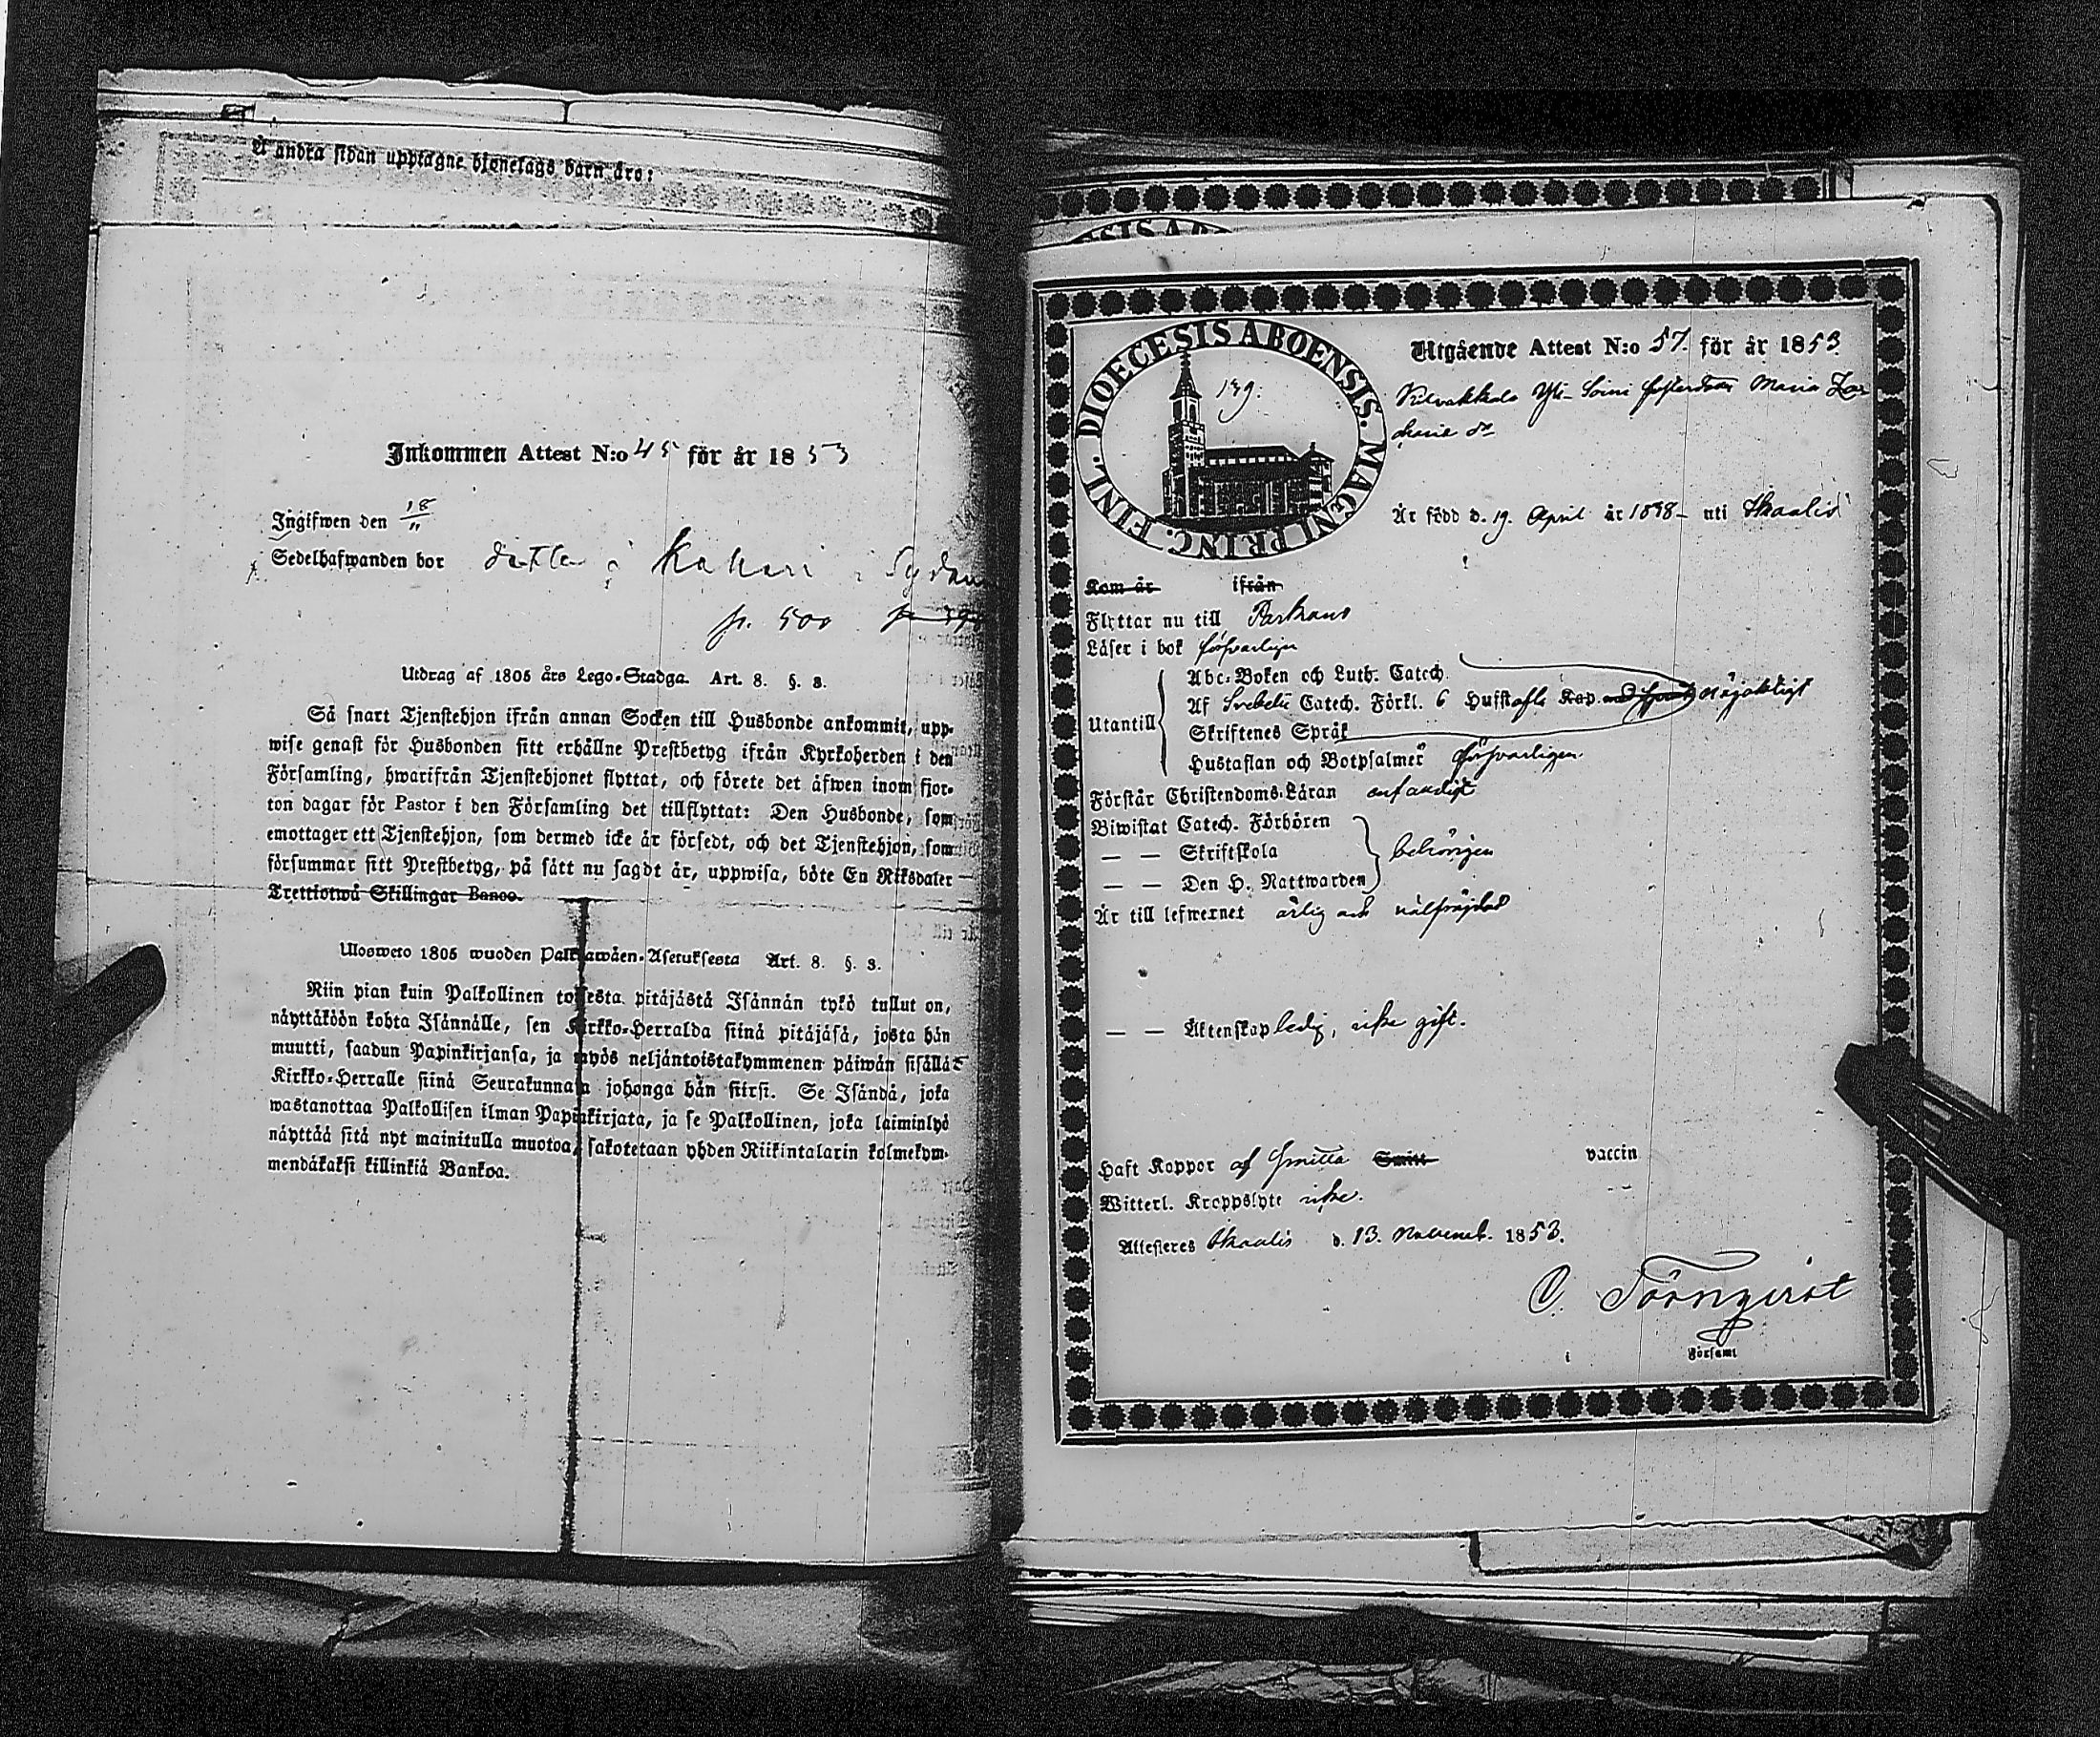 Å andra sidan upptagne hjonelags barn äro:
Inkommen Attest N:o 45 för år 1853
Ingifwen den 18/11
Sedelhafwanden bor i
p. 500
Utdrag af 1805 års Lego-Stadga. Art. 8. §. 8.
Så snart Tjenstehjon ifrån annan Socken till Husbonde ankommit, upp-
wise genast för Husbonden sitt erhållne Prestbetyg ifrån Kyrkoherden i den
Församling, hwarifrån Tjenstehjonet flyttat, och förete det äfwen inom fjor-
ton dagar för Pastor i den Församling det tillflyttat: Den Husbonde, som
emottager ett Tjenstehjon, som dermed icke är försedt, och det Tjenstehjon, som
försummar sitt Prestbetyg, på sätt nu sagdt är, uppwisa, böte En Riksdaler
Trettiotwå Skillingar Banco.
Ulosweto 1805 wuoden Palkkawäen-Asetuksesta Art. 8. §. 8.
Niin pian kuin Palkollinen toisesta pitäjästä Isännän tykö tullut on,
näyttäköön kohta Isännälle, sen Kirkko-Herralda siinä pitäjäsä, josta hän
muutti, saadun Papinkirjansa, ja myös neljäntoistakymmenen päiwän sisällä
Kirkko-Herralle siinä Seurakunnasa johonga hän siirsi. Se Isändä, joka
wastanottaa Palkollisen ilman Papinkirjata, ja se Palkollinen, joka laiminlyö
näyttää sitä nyt mainitulla muotoa, sakotetaan yhden Riikintalarin kolmekym-
mendäkaksi killinkiä Bankoa.
DIOECESIS ABOENSIS. MAGNI PRINC. FINL.
139.
Utgående Attest N:o 57. för år 1853.
Kilvakkala Yli-Soini Maria Za-
charie dr
Är född d. 19. April år 1838 uti Ikaalis
Kom år ifrån
Flyttar nu till Parkano
Läser i bok försvarligen
Utantill
Abc-Boken och Luth. Catech.
Af Svebelii Catech. Förkl. 6 Hufst Kap. nöjaktigt
Skriftenes Språk
Hustaflan och Botpsalmer försvarligen
Förstår Christendoms-Läran enfaldigt
Biwistat Catech. Förhören
— — Skriftskola behörigen
— — Den H. Nattwarden
Är till lefwernet ärlig och välfräjdad
— — Äktenskap ledig, icke gift.
Haft Koppor af Smitta Smitt vaccin
Witterl. Kroppslyte icke.
Attesteres Ikaalis d. 13. Novemb. 1853.
C. Törnqvist
Församl